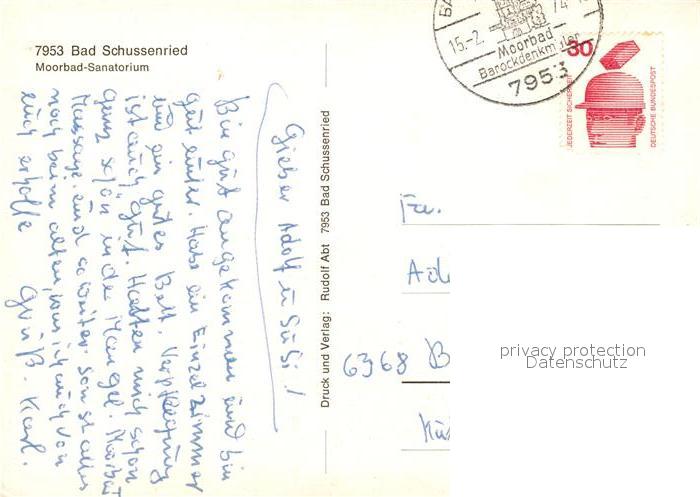 7953 Bad Schussenried
Moorbad-Sanatorium
BA
15.-2.
74-1
Moorbad
Barockdenkmäler
7953
30
JEDERZEIT SICHERHEIT
DEUTSCHE BUNDESPOST
Druck und Verlag: Rudolf Abt 7953 Bad Schussenried
Lieber Adolf u Susi!
Bin gut angekommen und bin
gut unter. Habe ein Einzelzimmer
und ein gutes Bett. Verpflegung
ist auch gut. Haben mich schon
ganz schön in der Mangel. Moorbad
Massage und so weiter. Sonst alles
noch beim alten, was ich auch von
euch erhoffe
Gruß. Karl.
Fa.
Ad
6368 B
privacy protection
Datenschutz